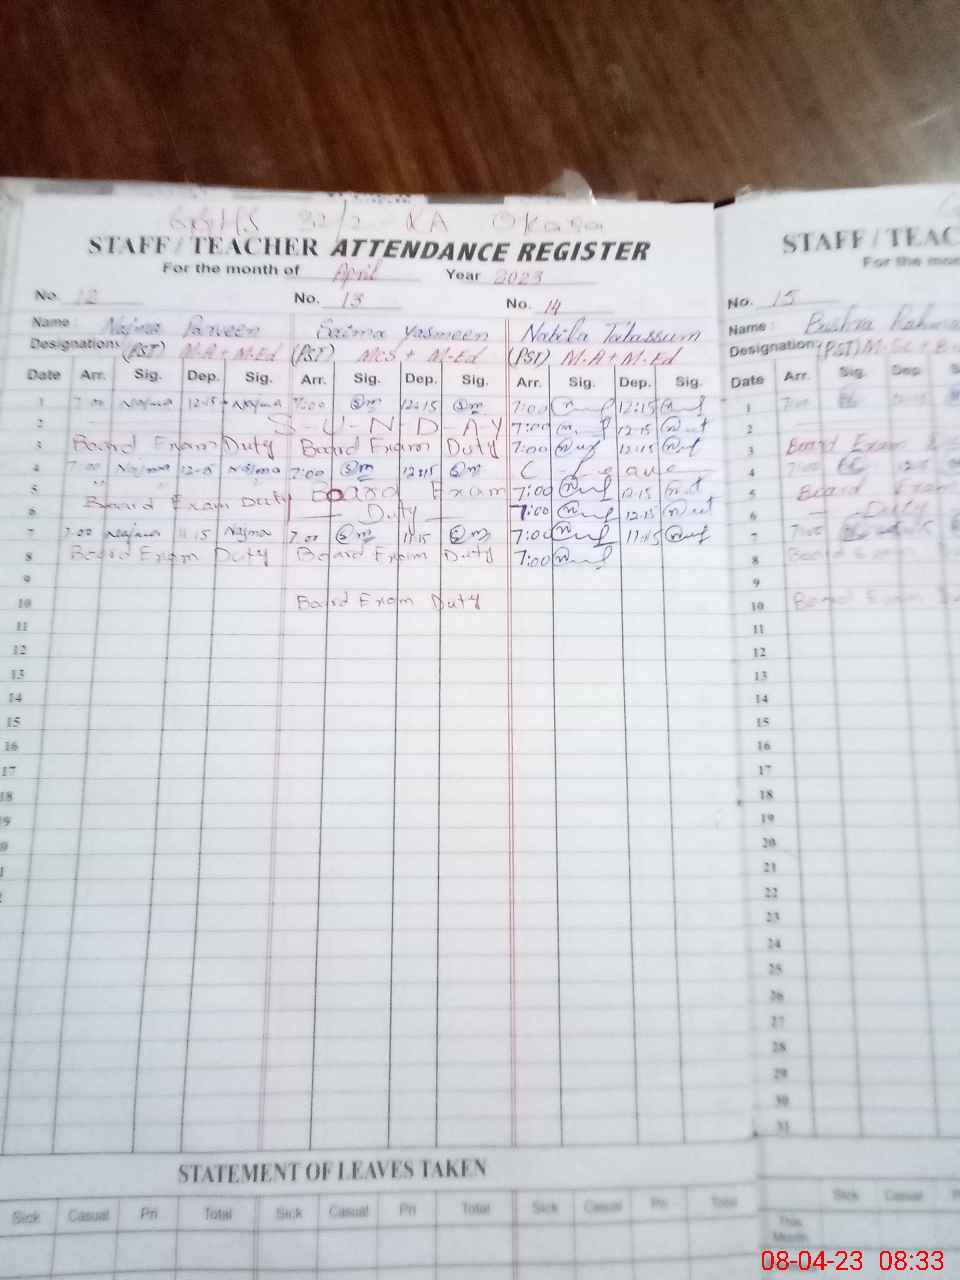 GGHS 32/2-RA Okara
STAFF / TEACHER ATTENDANCE REGISTER
For the month of April Year 2023
No. 12 No. 13 No. 14
Name: Najma Parveen Saima Yasmeen Nabila Tabassum
Designations (PST) M.A + M.Ed (PST) MCS + M-Ed (PST) M.A + M.Ed
Date Arr. Sig. Dep. Sig. Arr. Sig. Dep. Sig. Arr. Sig. Dep. Sig.
1 7:00 Najma 12:15 Najma 7:00 Sm 12:15 Sm 7:00 12:15
2 S-U-N-D-A-Y 7:00 12:15
3 Board Exam Duty Board Exam Duty 7:00 12:15
4 7:00 Najma 12:15 Najma 7:00 Sm 12:15 Sm C - Leave
5 Board Exam Duty Board Exam 7:00 12:15
6 Duty 7:00 12:15
7 7:00 Najma 11:15 Najma 7:00 Sm 11:15 Sm 7:00 11:15
8 Board Exam Duty Board Exam Duty 7:00
9
10 Board Exam Duty
11
12
13
14
15
16
17
18
STATEMENT OF LEAVES TAKEN
Sick Casual Pri Total Sick Casual Pri Total Sick Casual Pri Total
STAFF / TEAC
For the mon
No. 15
Name: Bushra
Designation (PST) M.Sc +
Date Arr. Sig. Dep.
1 7:00
2
3 Board Exam
4 7:00
5 Board Exam
6 Duty
7 7:00
8 Board
9
10 Board Exam
11
12
13
14
15
16
17
18
19
20
21
22
23
24
25
26
27
28
29
30
31
Sick Casual
This
Month
08-04-23 08:33